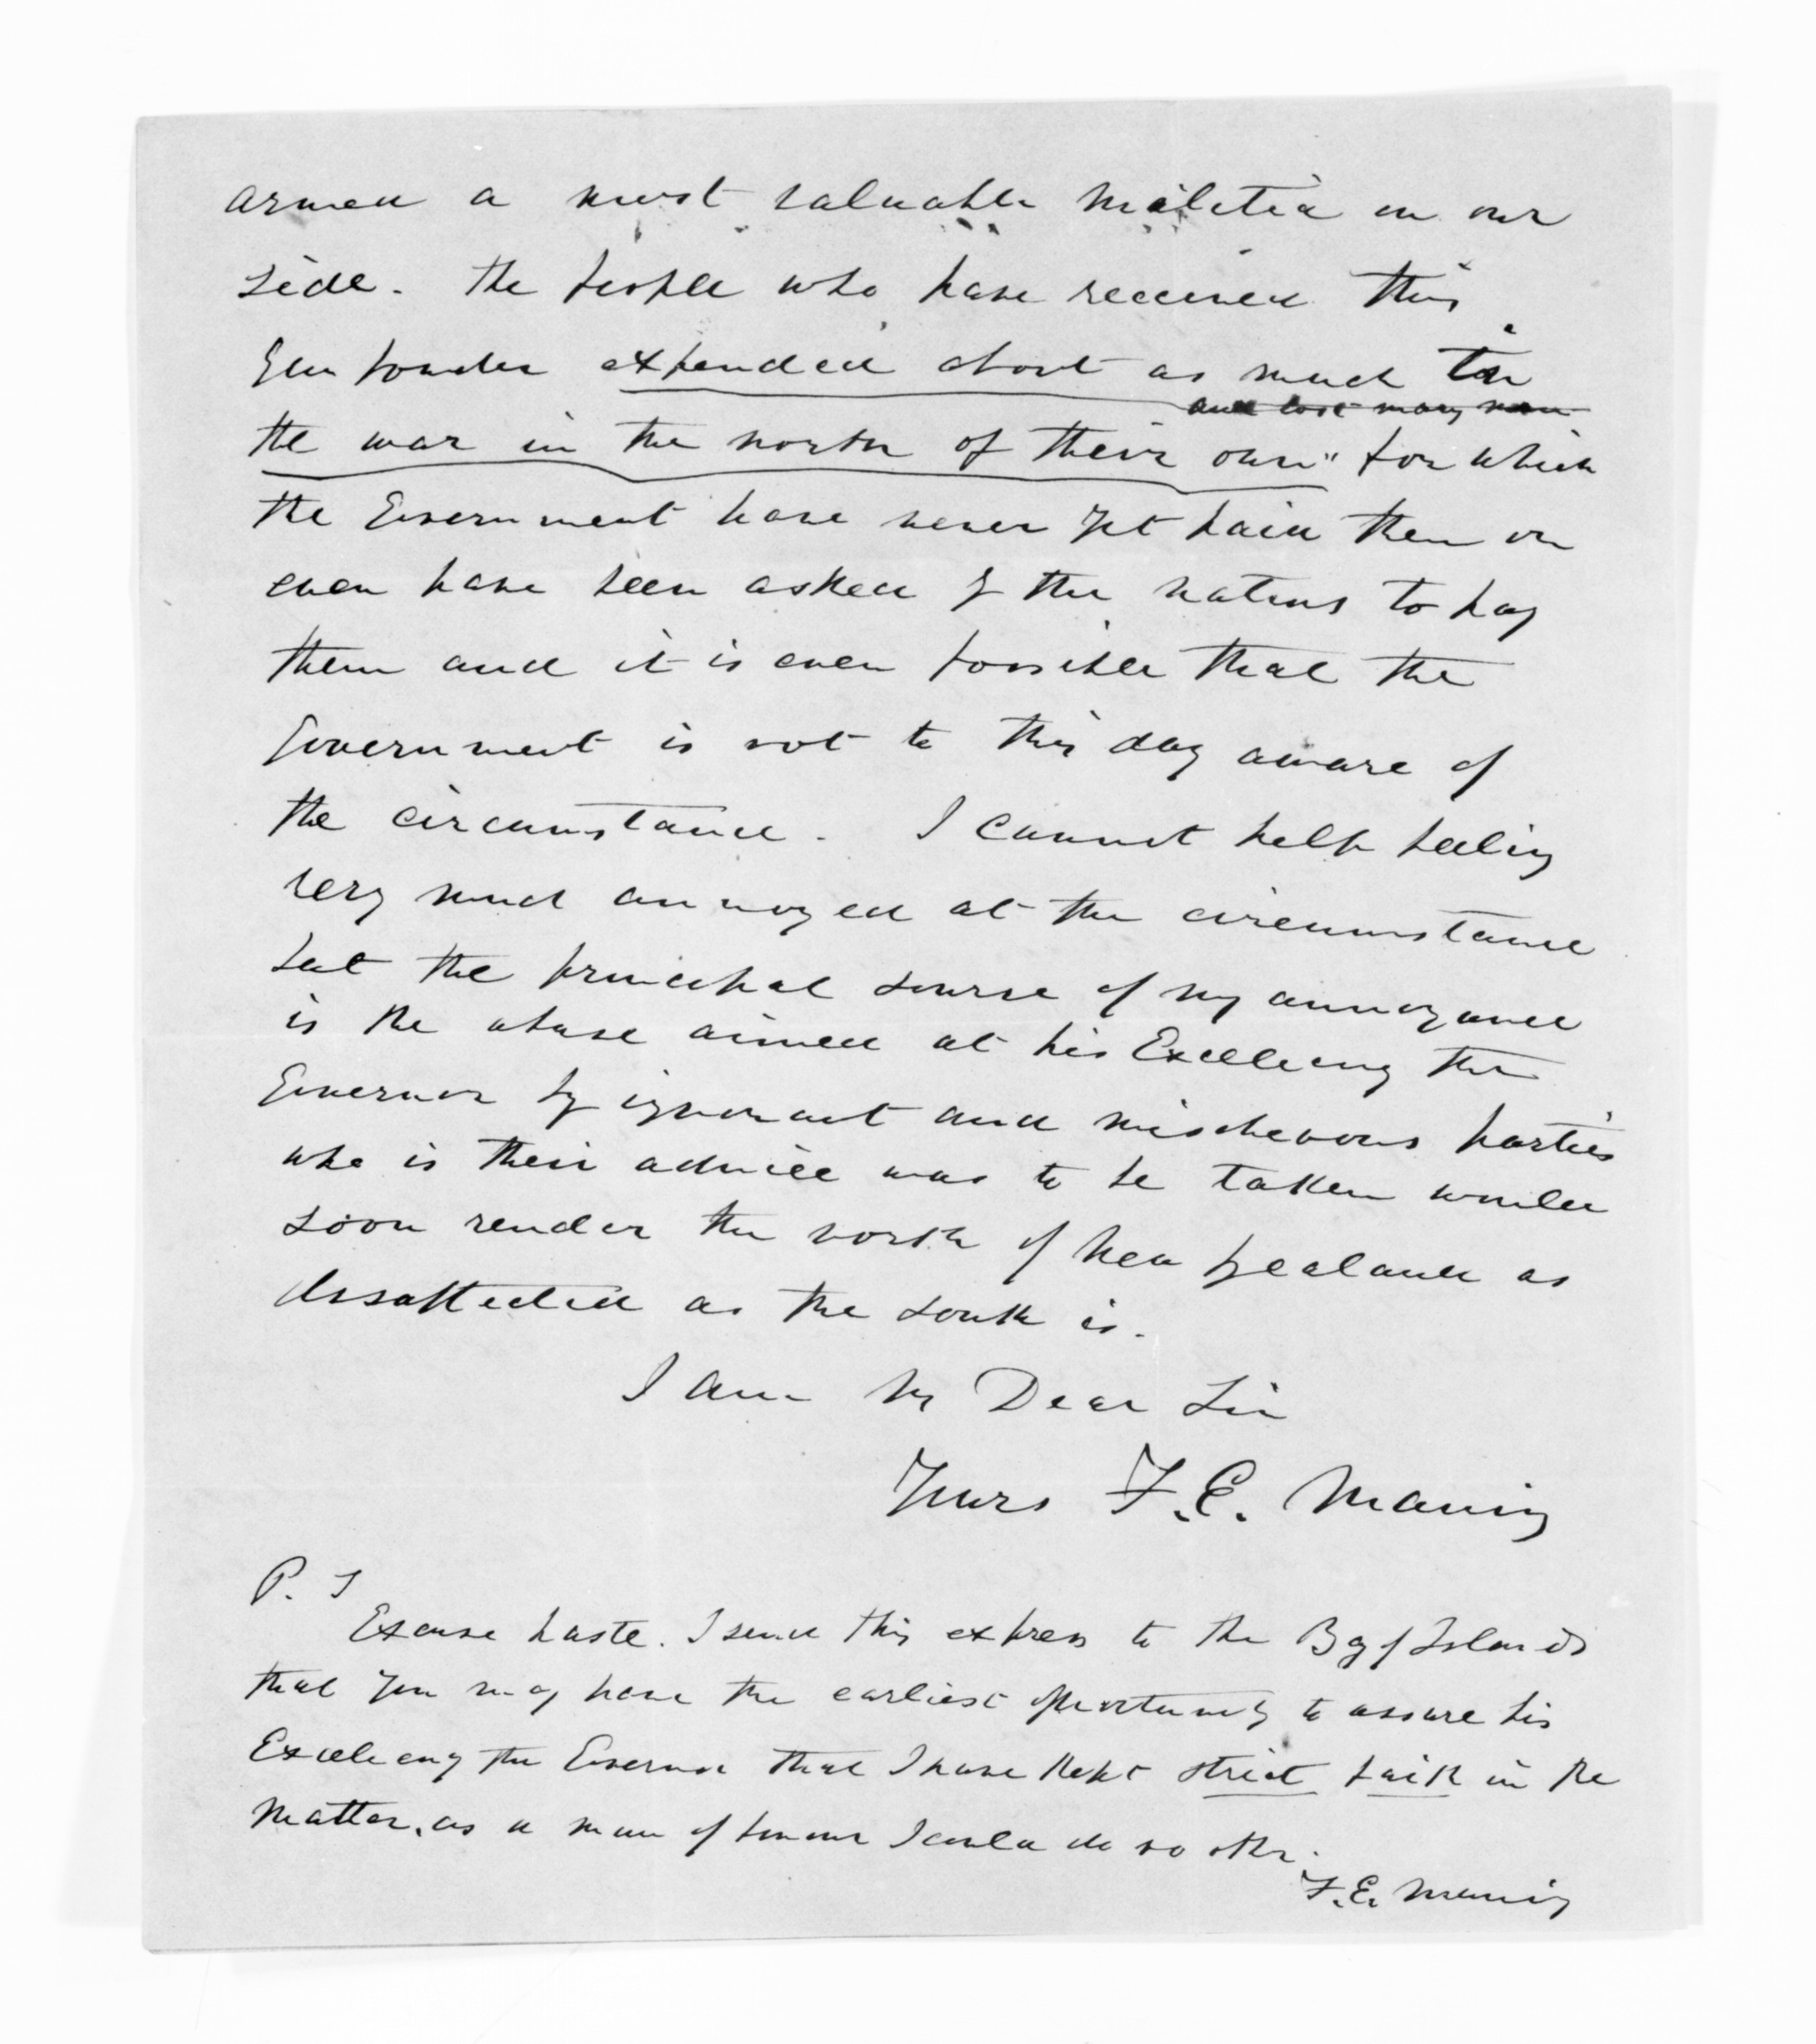 armed a most valuable militia on our
side. The people who have received this
Gunpowder expended about as much in
and lost many men
the war in the north of their own" for which
the Government have never yet paid them or
even have been asked by the natives to pay
them and it is even possible that the
Government is not to this day aware of
the circumstance. I cannot help feeling
very much annoyed at the circumstance
but the principal sourse of my annoyance
is the abuse aimed at his Excellency the
Governor by ignorant and mischevous parties
who is their advice was to be taken would
soon render the north of New Zealand as
dissaffected as the south is.
I am My Dear Sir
Yours F. E. Maning
P. S
Excuse haste. I send this express to the Bay of Islands
that you may have the earliest opportunity to assure his
Excellency the Governor that I have kept strict faith in the
matter, as a man of honour I could do no other.
F. E. Maning